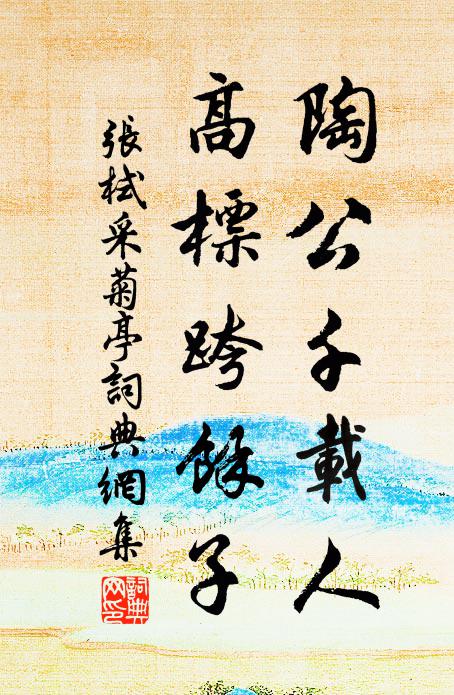 陶公千載人
高標跨餘子
張栻采菊亭詞典網集
詞典
网印